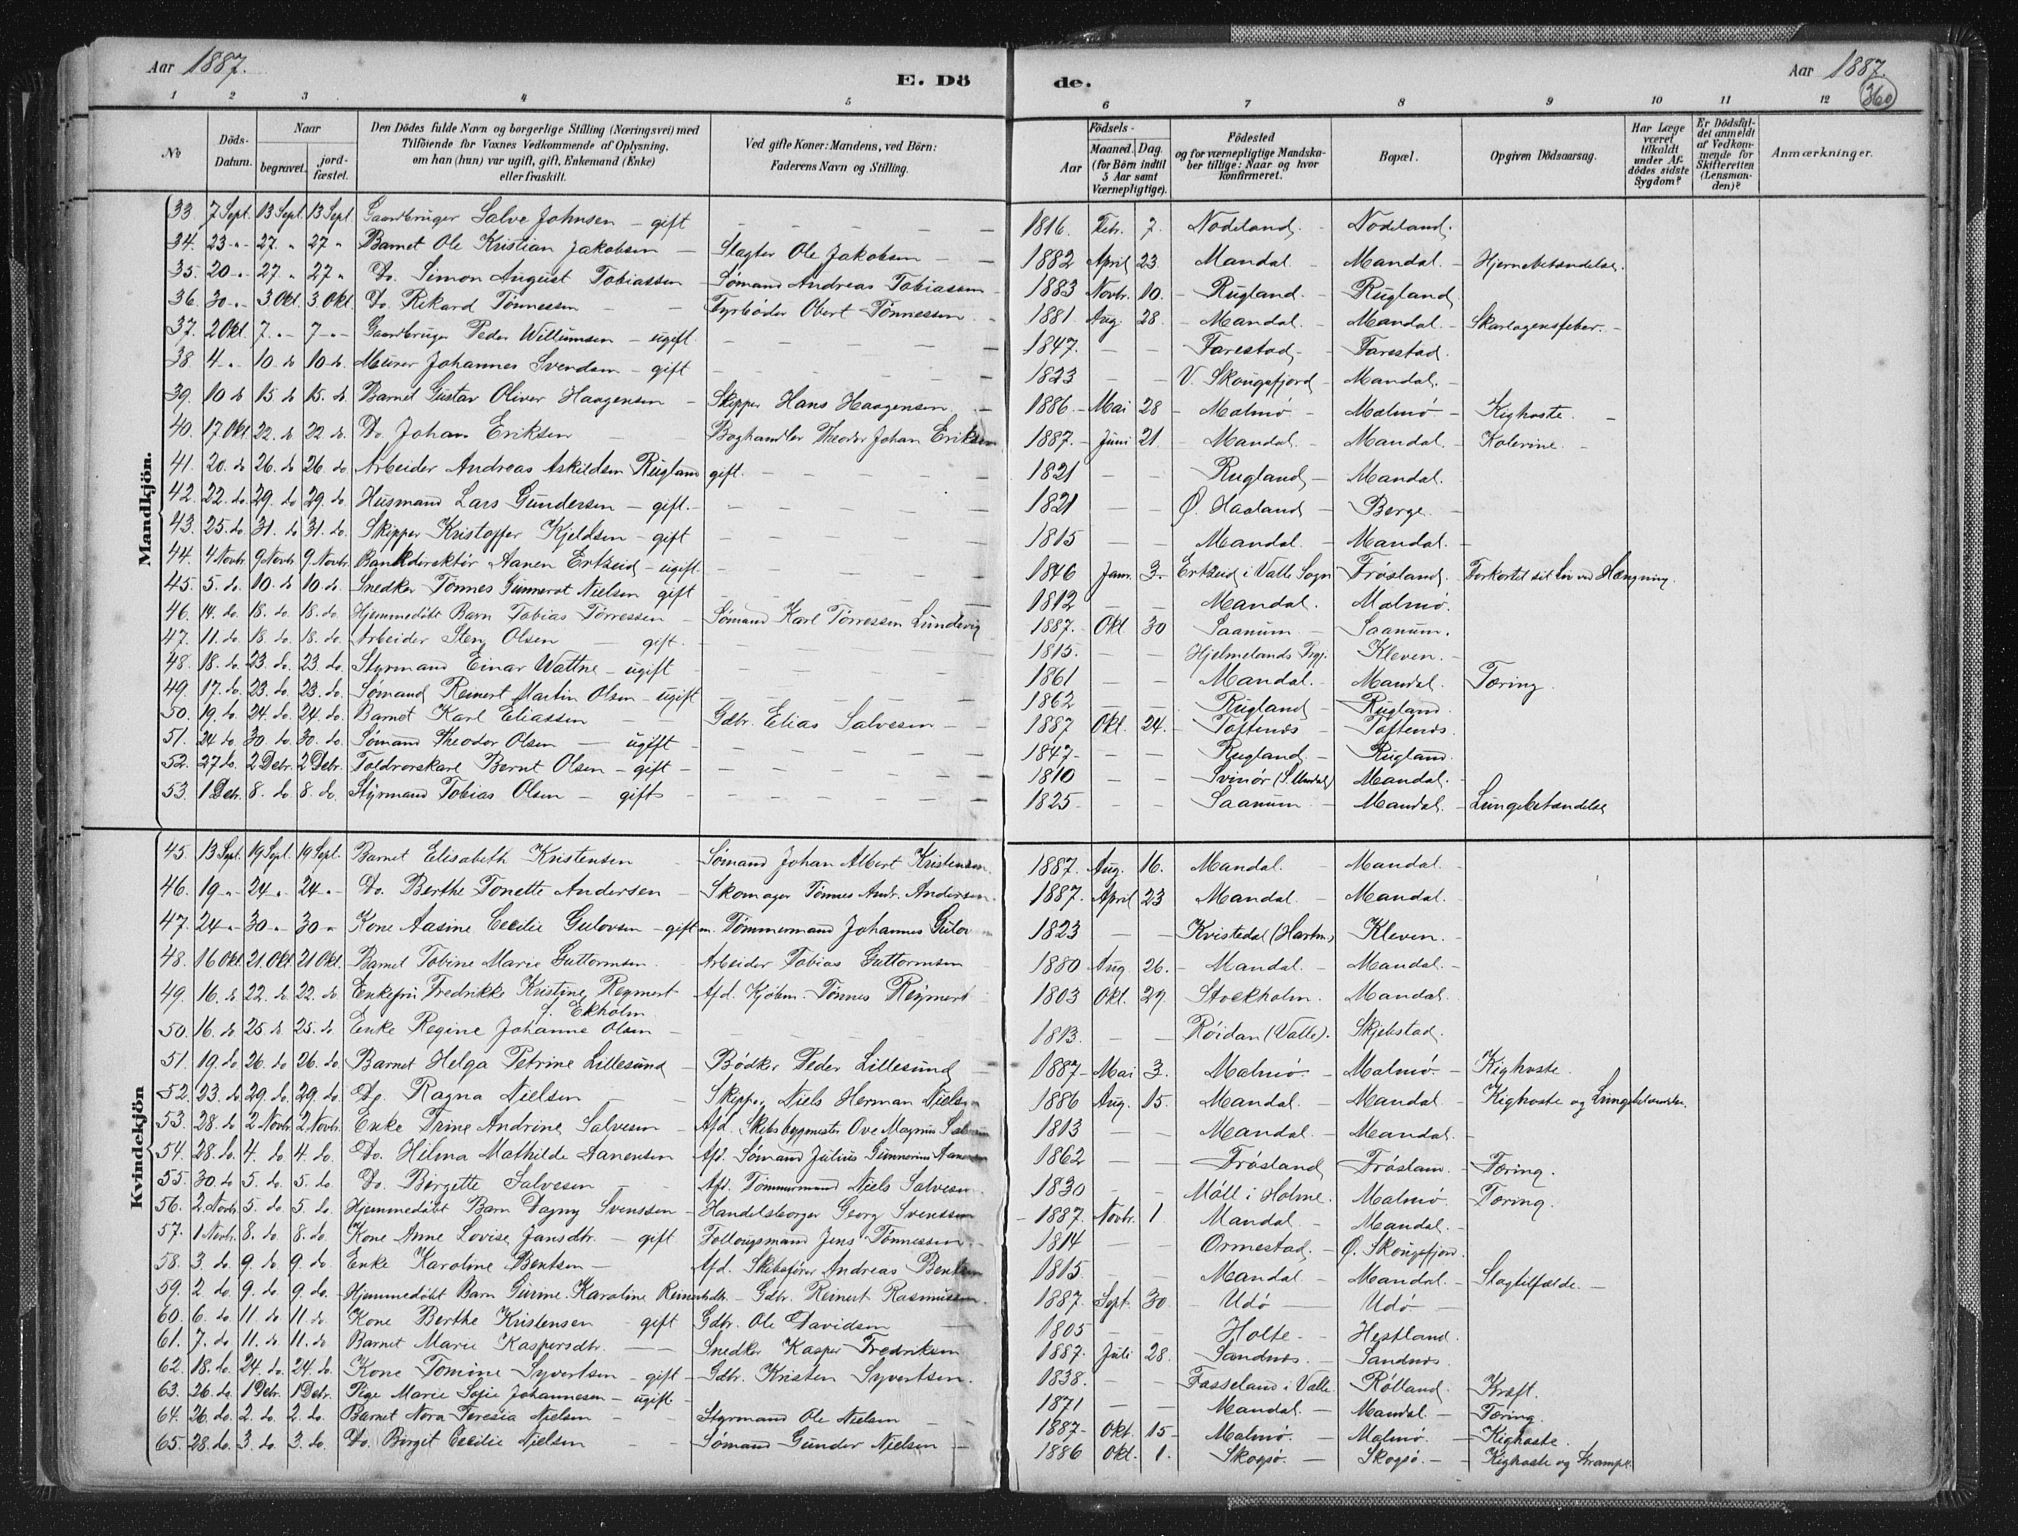 Aar 1887.
E. Dö
de.
Aar 1887.
360
1 2 3 4 5 6 7 8 9 10 11 12
No
Döds-Datum.
Naar
begravet.
jord-fæstet.
Den Dödes fulde Navn og borgerlige Stilling (Næringsvei) med Tilföiende for Voxnes Vedkommende af Oplysning, om han (hun) var ugift, gift, Enkemand (Enke) eller fraskilt.
Ved gifte Koner: Mandens, ved Börn: Faderens Navn og Stilling.
Födsels-
Aar
Maaned. Dag.
(for Börn indtil 5 Aar samt Værnepligtige).
Födested og for værnepligtige Mandska-ber tillige: Naar og hvor konfirmeret.
Bopæl.
Opgiven Dödsaarsag.
Har Læge været tilkaldt under Af-dödes sidste Sygdom?
Er Dödsfal-det anmeldt af Vedkom-mende for Skifteretten (Lensman-den)?
Anmærkninger.
Mandkjön.
33. 7 Sept. 13 Sept. 13 Sept. Gaardbruger Salve Johnsen – gift – 1816. Febr. 7. Nodeland. – Nodeland.
34. 23 „ 27. „ 27 „ Barnet Ole Kristian Jakobsen – Slagter Ole Jakobsen – 1882 April 23. Mandal – Mandal. – Hjernebetændelse.
35. 20 „ 27 „ 27 „ Do. Simon August Tobiassen – Sømand Andreas Tobiassen – 1883 Novbr. 10. – Rugland. – Rugland.
36. 30 „ 3 Okt. 3 Okt. Do. Rikard Tønnessen – Fyrbøder Obert Tønnessen. 1881. Aug 28. – Mandal. – Mandal. – Skarlagensfeber. –
37. 2 Okt. 7. „ 7 „ Gaardbruger Peder Willumsen – ugift 1847. – – Farestad, – Farestad.
38 4 „ 10 do 10 do. Murer Johannes Svendsen – gift 1823 – – V. Skougsfjord – Mandal. –
39. 10 do 15 do 15. do. Barnet Gustav Oliver Haagensen – Skipper Hans Haagensen. 1886. – Mai 28 – Malmø – Malmø – Kighoste. –
40. 17 Okt. 22. do 22. do. Do. Johan Eriksen – Boghandler Theodor Johan Eriksen 1887. – Juni 21. – Mandal. – Mandal. – Kolerine. –
41. 20. do 26. do 26. do. Arbeider Andreas Askildsen Rugland gift. 1821 – – Rugland, – Mandal.
42. 22. do. 29. do 29. do. Husmand Lars Gundersen – gift. – 1821 – – Ø. Haaland – Berge. –
43. 25. do 31. do 31. do. Skipper Kristoffer Kjeldsen – gift 1815 – – Mandal. – Mandal. –
44. 4 Novbr. 9 Novbr. 9. Novbr. Bankdirektør Aanen Ertzeid – ugift 1846 Janr. 3. – Ertzeid i Valle Sogn Frøsland. – Forkortet sit Liv ved Hængning.
45. 5. do. 10. do 10. do. Snedker Tønnes Gunnerot Nielsen gift – 1812 – – Mandal. – Malmø.
46. 14. do. 18. do. 18. do. Hjemmedøbt Barn Tobias Tørressen – Sømand Karl Tørressen Lundevig 1887. – Okt 30 – Saanum – Saanum.
47. 11. do. 18. do. 18. do. Arbeider Sten Olsen – gift. 1815. – – Hjelmelands Prgj. – Kleven. –
48. 18. do. 23. do. 23. do. Styrmand Einar Wattne – ugift – 1861 – – Mandal. – Mandal. – Tæring.
49. 17. do. 23. do. 23. do. Sømand Reinert Martin Olsen – ugift 1862 – – Rugland, – Rugland.
50. 19. do. 24. do. 24. do. Barnet Karl Eliassen – Gdbr. Elias Salvesen – 1887 Okt. 24. – Toftenes – Toftenes.
51. 24 do. 30. do. 30. do. Sømand Theodor Olsen – ugift – 1847 – – Rugland. – Rugland.
52. 27 do. 2 Debr. 2 Debr. Toldrorskarl Bernt Olsen – gift – 1810 – – Svinør (S. Undal) – Mandal. –
53. 1 Debr. 8. do. 8. do. Styrmand Tobias Olsen – gift – 1825 – – – Saanum – Mandal. – Lungebetændelse
Kvindekjön
45. 13 Sept. 19 Sept. 19 Sept. Barnet Elisabeth Kristensen – Sømand Johan Albert Kristensen 1887. Aug. 16. – Mandal. – Mandal. –
46. 19 „ 24 „ 24 „ Do. Berthe Tonette Andersen – Skomager Tønnes Andr. Andersen. 1887. April 23 – Mandal. – Mandal. –
47. 24 „ 30 „ 30 „ Kone Aasine Cecilie Gulovsen – gift m. Tømmermand Johannes Gulov 1823 – – Kvistedal (Hartm.) Kleven. –
48. 16 Okt. 21. Okt. 21 Okt. Barnet Tobine Marie Guttormsen. Arbeider Tobias Guttormsen 1880 Aug. 26. – Mandal. – Mandal. –
49. 16. do 22. do 22. do. Enkefru Fredrikke Kristine Reymert f. Ekholm Afd. Kjøbm. Tønnes Reymert 1803 Okt. 29. Stockholm. – Mandal. –
50. 16. do 25 do 25. do Enke Regine Johanne Olsen – 1813. – – Røidan (Valle). – Skjebstad.
51. 19. do 26. do 26. do. Barnet Helga Petrine Lillesund – Bødker Peder Lillesund – 1887 – Mai 3. – Malmø. – Malmø – Kighoste.
52. 23. do. 29. do. 29. do. Do. Ragna Nielsen – Skipper Niels Herman Nielsen 1886 Aug. 15. – Mandal. – Mandal. – Kighoste og Lungebetændelse.
53. 28. do 2 Novbr. 2 Novbr. Enke Trine Andrine Salvesen – Afd. Skibsbygmester Ove Magnus Salvesen 1813 – – Mandal. – Mandal. –
54. 28. do. 4. do. 4. do. Do. Hilma Mathilde Aanensen Afd. Sømand Julius Gunnerius Aanensen 1862 – – Frøsland, – Frøslan. – Tæring.
55. 30. do 5. do. 5. do. Do. Birgette Salvesen – Afd. Tømmermand Niels Salvesen. 1830 – – Møll i Holme. – Malmø. – Tæring.
56. 2. Novbr. 5. do. 5. do. Hjemmedøbt Barn Dagny Svenssen – Handelsborger Georg Svenssen – 1887. Novbr. 1 – Mandal – Mandal. –
57. 1 Novbr. 8. do. 8. do. Kone Anne Lovise Jansdtr. – gift Føllougsmand Jens Tønnessen. 1814 – – Ormestad. – Ø. Skougsfjord.
58. 3. do. 9. do. 9. do. Enke Karoline Bentsen – Afd. Skibsfører Andreas Bentsen 1815. – – Mandal. – Mandal. – Slagtilfælde. –
59. 2 do. 9. do. 9. do. Hjemmedøbt Barn Gurine Karoline Reinertsdtr. – Gdbr. Reinert Rasmussen. 1887. Sept. 30. – Udø – Udø –
60. 6. do. 11. do. 11. do. Kone Berthe Kristensen – gift Gdbr. Ole Davidsen – 1805 – – Holte – Hestland.
61. 7. do. 11. do. 11. do. Barnet Marie Kaspersdtr. – Snedker Kasper Fredriksen 1887. Juli 28. – Sandnes. – Sandnes.
62. 18. do. 24. do. 24. do. Kone Tomine Syvertsen – gift – Gdbr. Kristen Syvertsen. 1838. – – Fasseland i Valle. Rølland. – Kræft.
63. 26. do. 1 Debr. 1 Debr. Pige Marie Sofie Johannesen – ugift – 1871 – – Mandal. – Mandal. – Tæring.
64. 26. do. 2. do. 2. do. Barnet Nora Teresia Nielsen – Styrmand Ole Nielsen – 1887 – Okt. 15 – Malmø. – Malmø. – Kighoste.
65. 28. do. 3. do. 3. do. Do. Borgit Cecilie Nielsen – Sømand Gunder Nielsen – 1886 Okt. 1. – Skogsø. – Skogsø. – Kighoste og Krampe.